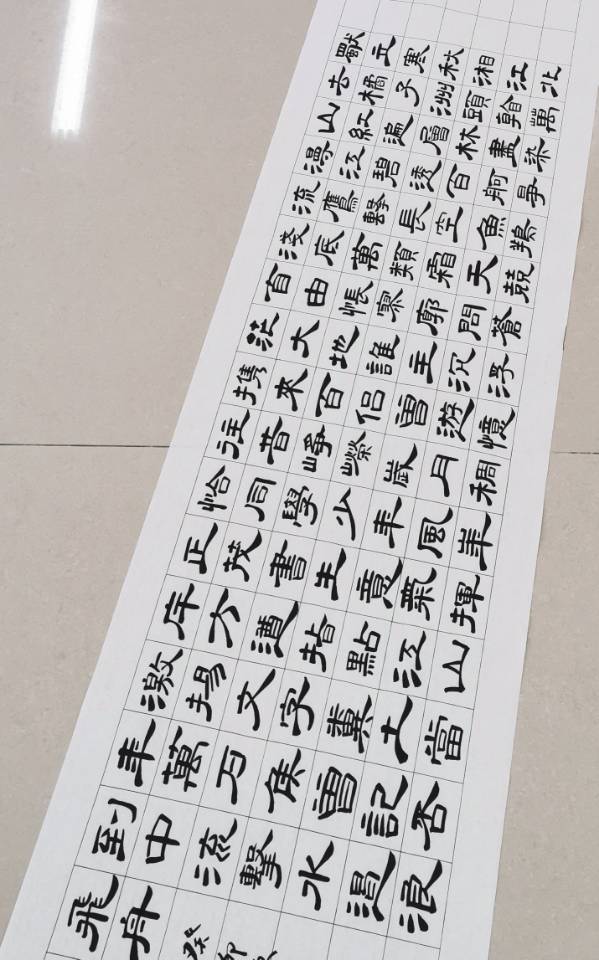 獨立寒秋湘江北
去橘子洲頭看萬
山紅遍層林盡染
漫江碧透百舸爭
流鷹擊長空魚翔
淺底萬類霜天競
自由悵寥廓問蒼
茫大地誰主沉浮
攜來百侶曾遊憶
往昔崢嶸歲月稠
恰同學少年風華
正茂書生意氣揮
斥方遒指點江山
激揚文字糞土當
年萬戶侯曾記否
到中流擊水遏浪
飛舟
癸卯